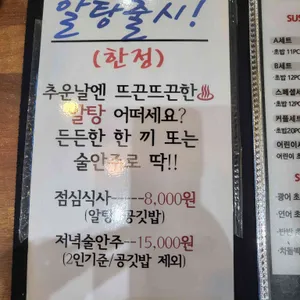 알탕출시!
(한정)
추운날엔 뜨끈뜨끈한♨
알탕 어떠세요?
든든한 한 끼 또는
술안주로 딱!!
점심식사----8,000원
(알탕+공깃밥)
저녁술안주--15,000원
(2인기준/공깃밥 제외)
SUS
A세트
초밥 11PC
B세트
초밥 12PC
스페셜세
커플세트
초밥20P
어린이
S
광어 초
연어 초